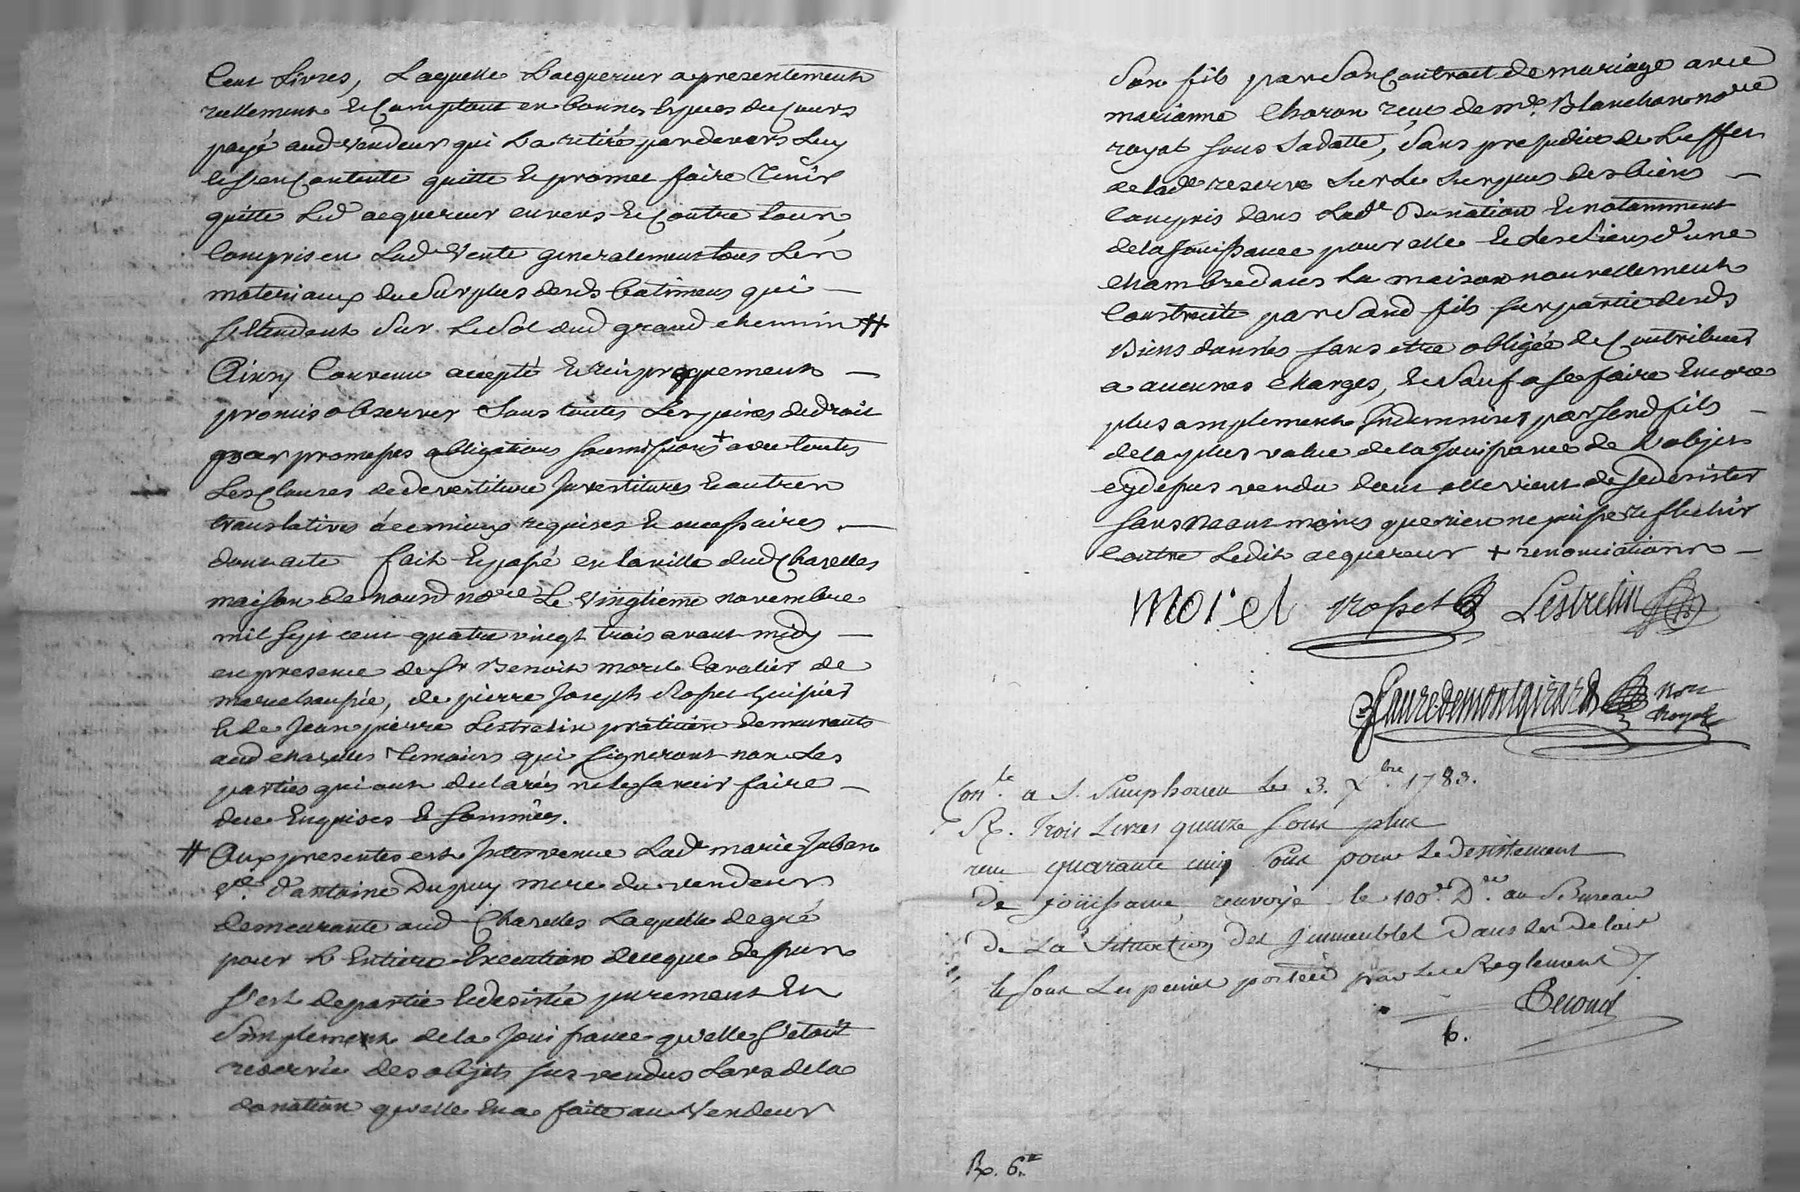 Cent Livres, Laquelle Lacquereur a presentement
reellement & Comptant en bonnes Especes du Cours
payé aud vendeur qui La retiré pardevers Luy
& s'en Contente quitte & promet faire Tenir
quitte Led acquereur envers & Contre tous,
Compris en Lad Vente generalement tous Les
materiaux du Surplus desds batimens qui —
S'Etendent Sur Le Sol dud grand chemin #
Ainsy Convenu accepté & reciproquement —
promis observer Sous toutes Les peines de droit
par promesses obligations soumissions + avec toutes
Les Clauses de devestiture Investitures & autres
translatives à ce mieux requises & necessaires. —
dont acte fait & passé en la ville dud Charelles
maison de nousd no.re Le vingtieme novembre
mil sept cent quatre vingt trois avant midy —
en presence de Sr Benoit morel Cavalier de
marechaussée, de pierre Joseph Rosset huissier
& de Jean pierre Lestrelin praticien demeurants
aud charelles Temoins qui signeront non Les
parties qui ont declarés ne le savoir faire —
de ce Enquises & sommées.
# Aux presentes est Intervenue Lade marie Juban
Ve. d'antoine Dupuy mere du vendeur
demeurante aud Charelles Laquelle de gré
pour L'Entiere Execution de ce que dessus
s'est departie & desistée purement &
Simplement de la Jouissance qu'elle s'etoit
reservée des objets sus vendus Lors de la
donation qu'elle En a faite au Vendeur
Son fils par Son Contrait de mariage avec
marianne Charon reçu de me. Blanchon no.re
royal sous Sa datte, Sans prejudice de L'effet
de lade reserve Sur Le Surplus des biens —
Compris dans Lade Donation & notamment
de la Jouissance pour elle & des siens d'une
chambre dans La maison nouvellement
Construite par Sond fils sur partie desds
Biens donnés sans etre obligée de Contribuer
a aucunes charges, & sauf a se faire Encore
plus amplement Indemniser par sond fils —
de la plus value de la Jouissance de L'objet
cy dessus vendu dont elle vient de se desister
sans Neantmoins que rien ne puisse reflechir
Contre Ledit acquereur + renonciations —
Morel Rosset Lestrelin
Fauredemontgirard no.re
Royal
Conle. a S. Simphorien Le 3. Xbre. 1783.
R. Trois Livres quinze sous plus
reçu quarante cinq sous pour Le desistement
de jouissance, renvoyé le 100e. De. au Bureau
de La Situation des Immeubles Dans les delais
& sous Les peines portées par Les Reglement
Second
6.
R. 6.